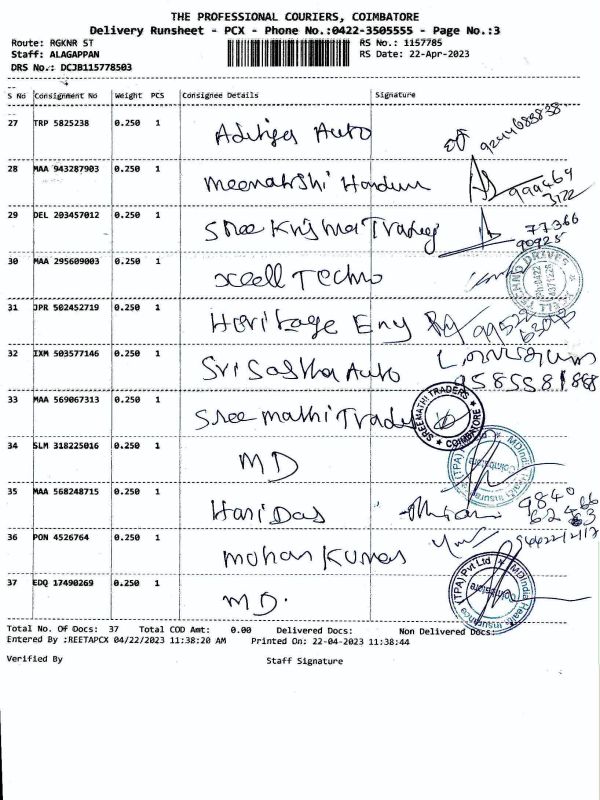 THE PROFESSIONAL COURIERS, COIMBATORE
Delivery Runsheet - PCX - Phone No.:0422-3505555 - Page No.:3
Route: RGKNR ST RS No.: 1157785
Staff: ALAGAPPAN RS Date: 22-Apr-2023
DRS No.: DCJB115778503
S No Consignment No Weight PCS Consignee Details Signature
27 TRP 5825238 0.250 1 Auto
28 MAA 943287903 0.250 1 Meenakshi
29 DEL 203457012 0.250 1 Sree Krishna 77366
90925
30 MAA 295609003 0.250 1 Xcell Techno
31 JPR 502452719 0.250 1 Heritage Eng
32 IXM 503577146 0.250 1 Sri Sastha Auto
9585581868
33 MAA 569067313 0.250 1 Sree mathi SREEMATHI TRADERS COIMBATORE
34 SLM 318225016 0.250 1 MD MDIndia Health Insurance (TPA) Coimbatore
35 MAA 568248715 0.250 1 Hari Das
36 PON 4526764 0.250 1 mohan Kumar
37 EDQ 17490269 0.250 1 MD. MDIndia Health Insurance (TPA) Pvt Ltd Coimbatore
Total No. Of Docs: 37 Total COD Amt: 0.00 Delivered Docs: Non Delivered Docs:
Entered By :REETAPCX 04/22/2023 11:38:20 AM Printed On: 22-04-2023 11:38:44
Verified By Staff Signature